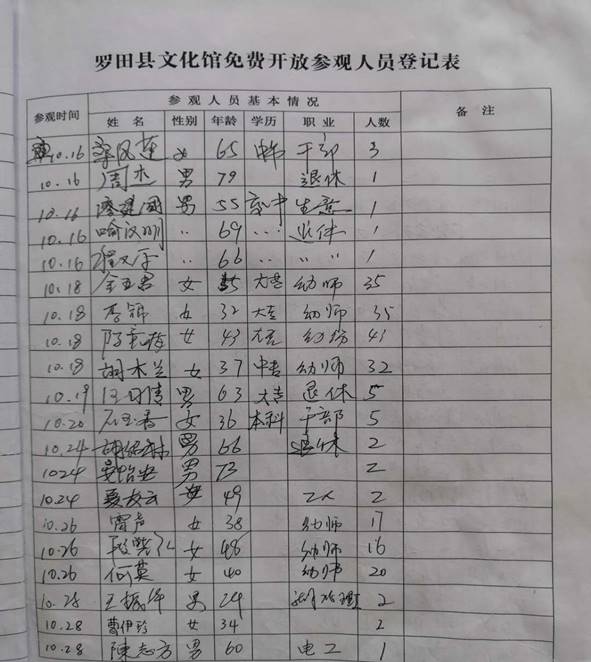 罗田县文化馆免费开放参观人员登记表
参观时间 参观人员基本情况 备注
姓名 性别 年龄 学历 职业 人数
10.16 女 65 干部 3
10.16 周杰 男 79 退休 1
10.16 男 55 高中 生意 1
10.16 喻汉明 〃 69 退休 1
10.16 〃 66 〃 〃 1
10.18 女 大专 幼师 35
10.18 李锦 女 32 大专 幼师 35
10.18 女 43 大专 幼师 41
10.18 胡木兰 女 37 中专 幼师 32
10.19 男 63 大专 退休 5
10.20 女 36 本科 干部 5
10.24 男 66 退休 2
10.24 男 73 2
10.24 女 49 工人 2
10.26 雷声 女 38 幼师 17
10.26 女 48 幼师 16
10.26 何莫 女 40 幼师 20
10.28 王振华 男 24 2
10.28 曹伊玲 女 34 2
10.28 陳志方 男 60 电工 1